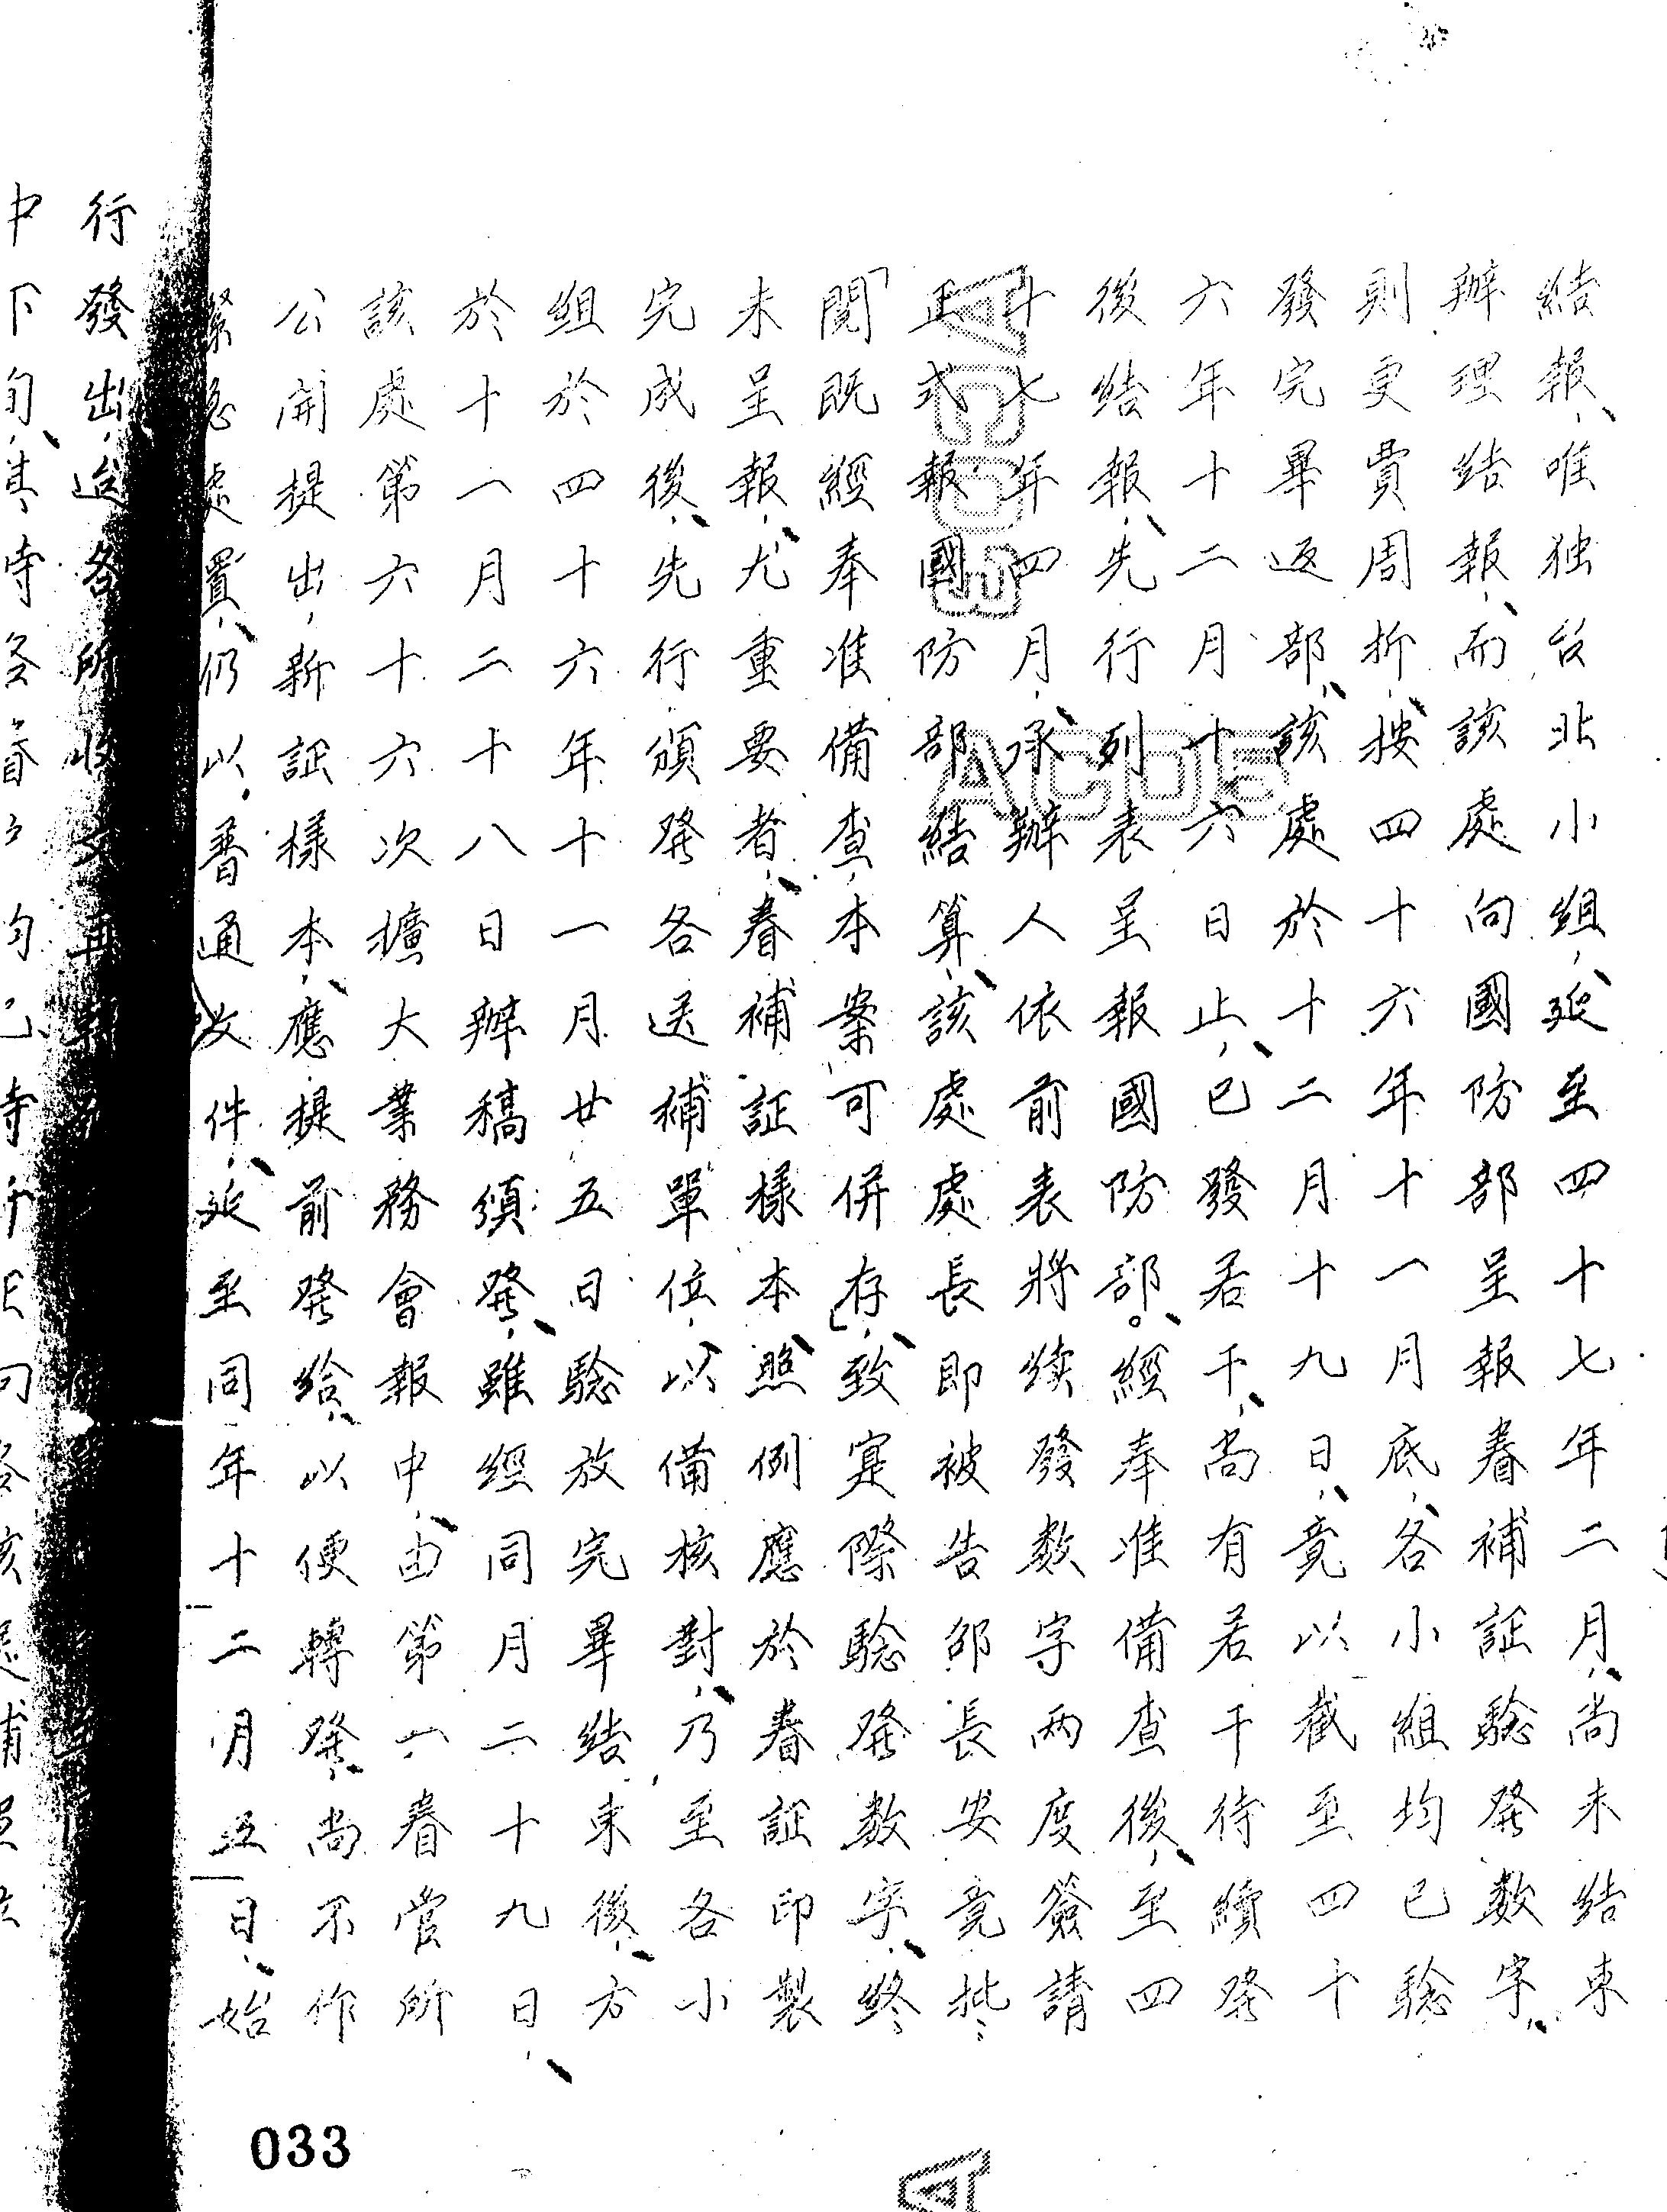 結報、唯独台北小組，延至四十七年二月、尚未結束
辦理結報、而該處向國防部呈報眷補証驗発数字、
則更費周折、按四十六年十一月底、各小組均已驗
發完畢返部、該處於十二月十九日、竟以截至四十
六年十二月十六日止、已發若干、尚有若干待續発
後結報、先行列表呈報國防部。經奉准備查後、至四
十七年四月、承辦人依前表將续發数字両度簽請
正式報國防部結算、該處處長即被告邵長安竟批：
「閱既經奉准備查，本案可併存」、致寔際驗発數字、終
未呈報、尤重要者、眷補証樣本照例應於眷証印製
完成後、先行頒発各送補單位，以備核對、乃至各小
組於四十六年十一月廿五日驗放完畢結束後、方
於十一月二十八日辦稿頒発、雖經同月二十九日、
該處第六十六次擴大業務會報中、由第一眷管所
公開提出，新証樣本、應提前発給、以便轉発、尚不作
緊急處置、仍以普通文件、延至同年十二月五日、始
行發出，迨各所收文再
033